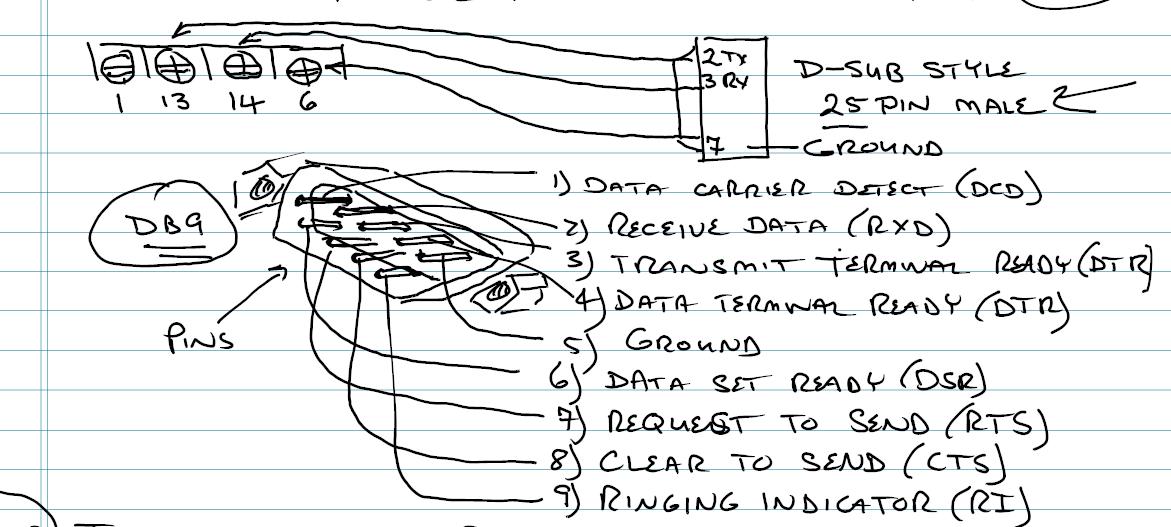 2 TX
3 RX
D-SUB STYLE
1 13 14 6
25 PIN MALE
7 GROUND
1) DATA CARRIER DETECT (DCD)
DB9
2) RECEIVE DATA (RXD)
3) TRANSMIT TERMINAL READY (DTR)
4) DATA TERMINAL READY (DTR)
PINS
5) GROUND
6) DATA SET READY (DSR)
7) REQUEST TO SEND (RTS)
8) CLEAR TO SEND (CTS)
9) RINGING INDICATOR (RI)